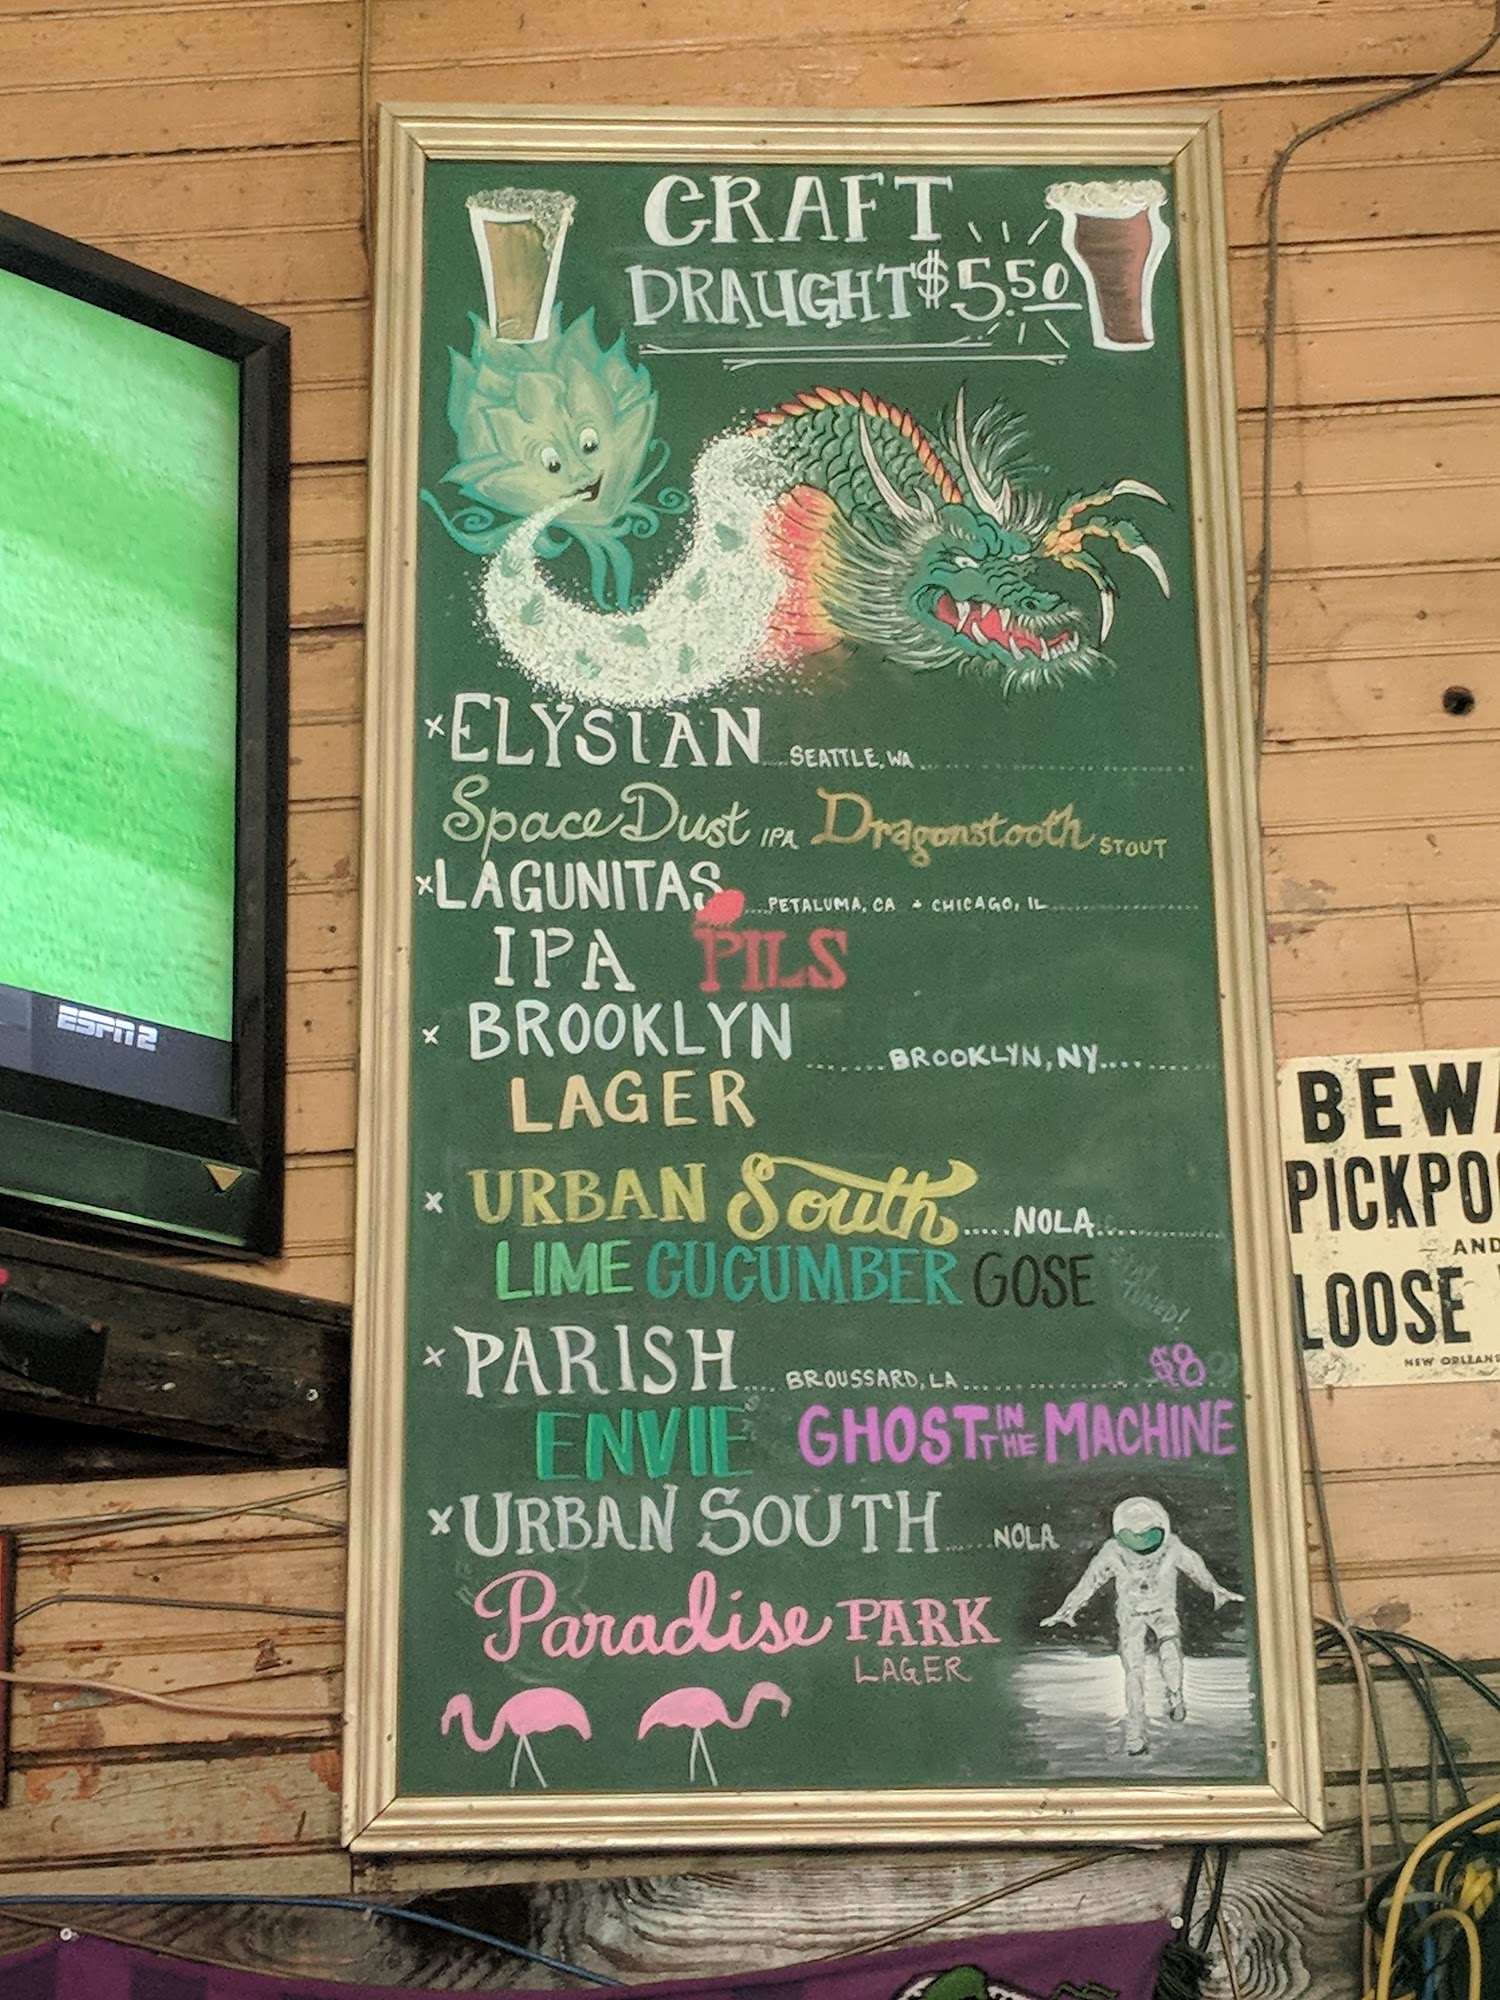 CRAFT
DRAUGHT $5.50
× ELYSIAN .... SEATTLE, WA ....
Space Dust IPA Dragonstooth STOUT
× LAGUNITAS .... PETALUMA, CA + CHICAGO, IL ....
IPA PILS
× BROOKLYN .... BROOKLYN, NY ....
LAGER
× URBAN South .... NOLA ....
LIME CUCUMBER GOSE
TUNED!
× PARISH .... BROUSSARD, LA .... $8
ENVIE GHOST IN THE MACHINE
× URBAN SOUTH .... NOLA
Paradise PARK
LAGER
ESPN2
BEWA
PICKPO
AND
LOOSE
NEW ORLEANS